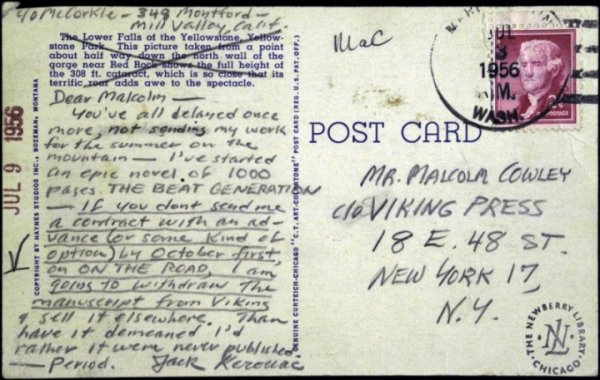 c/o McCorkle - 348 Montford -
Mill Valley, Calif.
The Lower Falls of the Yellowstone, Yellow-
stone Park. This picture taken from a point
about half way down the north wall of the
gorge near Red Rock shows the full height of
the 308 ft. cataract, which is so close that its
terrific roar adds awe to the spectacle.
Dear Malcolm —
You've all delayed once
more, not sending my work
for the summer on the
mountain — I've started
an epic novel of 1000
pages. THE BEAT GENERATION
— If you dont send me
a contract with an ad-
vance (or some kind of
option) by October first
on ON THE ROAD, I am
going to withdraw the
manuscript from Viking
& sell it elsewhere. Than
have it demeaned I'd
rather it were never published
— Period. Jack Kerouac
JUL 9 1956
COPYRIGHT BY HAYNES STUDIOS INC., BOZEMAN, MONTANA
GENUINE CURTEICH-CHICAGO "C.T. ART-COLORTONE" POST CARD (REG. U.S. PAT. OFF.)
MaC
JUL
3
1956
M.
WASH.
POSTAGE
POST CARD
MR. MALCOLM COWLEY
c/o VIKING PRESS
18 E. 48 ST.
NEW YORK 17,
N.Y.
THE NEWBERRY LIBRARY
CHICAGO